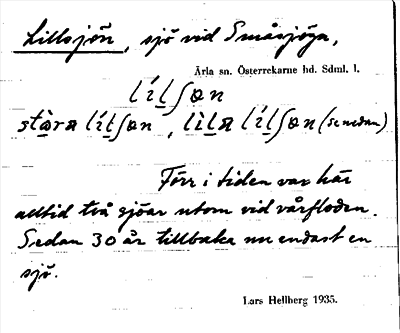 Lillsjön, sjö vid Småsjöga,
Ärla sn. Österrekarne hd. Sdml. l.
lílʃøn
stòra lílʃøn, lìla lílʃøn (se nedan)
Förr i tiden var här
alltid två sjöar utom vid vårfloden.
Sedan 30 år tillbaka nu endast en
sjö.
Lars Hellberg 1935.